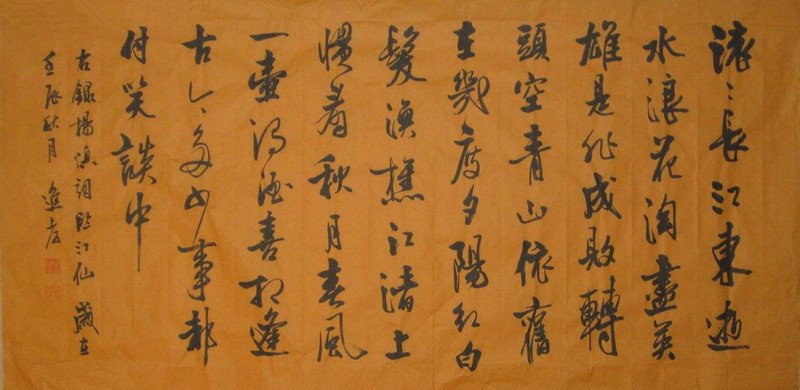 滚〻長江東逝
水浪花淘盡英
雄是非成敗轉
頭空青山依舊
在幾度夕陽紅白
髮漁樵江渚上
慣看秋月春風
一壺濁酒喜相逢
古今多少事都
付笑談中
右録楊慎詞臨江仙 歲在
壬辰秋月